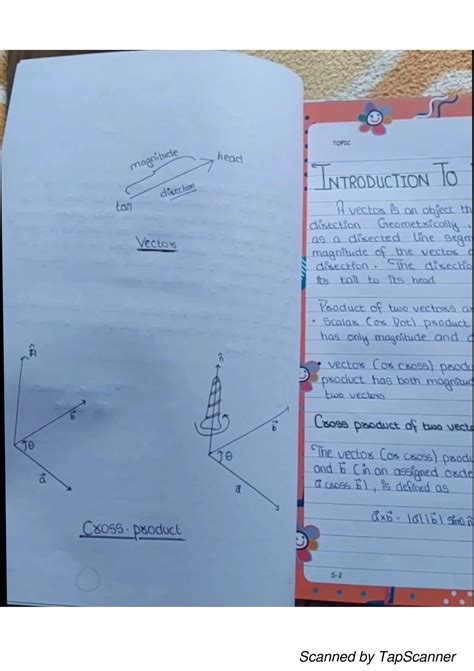 magnitude
head
direction
tail
Vector
n̂
b⃗
θ
a⃗
n̂
b⃗
θ
a⃗
Cross-product
TOPIC
INTRODUCTION TO
A vector is an object th
direction Geometrically,
as a directed line segm
magnitude of the vector
direction. The directio
its tail to its head
Product of two vectors a
• Scalar (or Dot) product
has only magnitude and
• vector (or cross) produ
product has both magnitu
two vectors
Cross product of two vecto
The vector (or cross) produ
and b⃗ (in an assigned orde
a⃗ cross b⃗), is defined as
a⃗xb⃗ = |a⃗||b⃗| sinθ n̂
S-2
Scanned by TapScanner